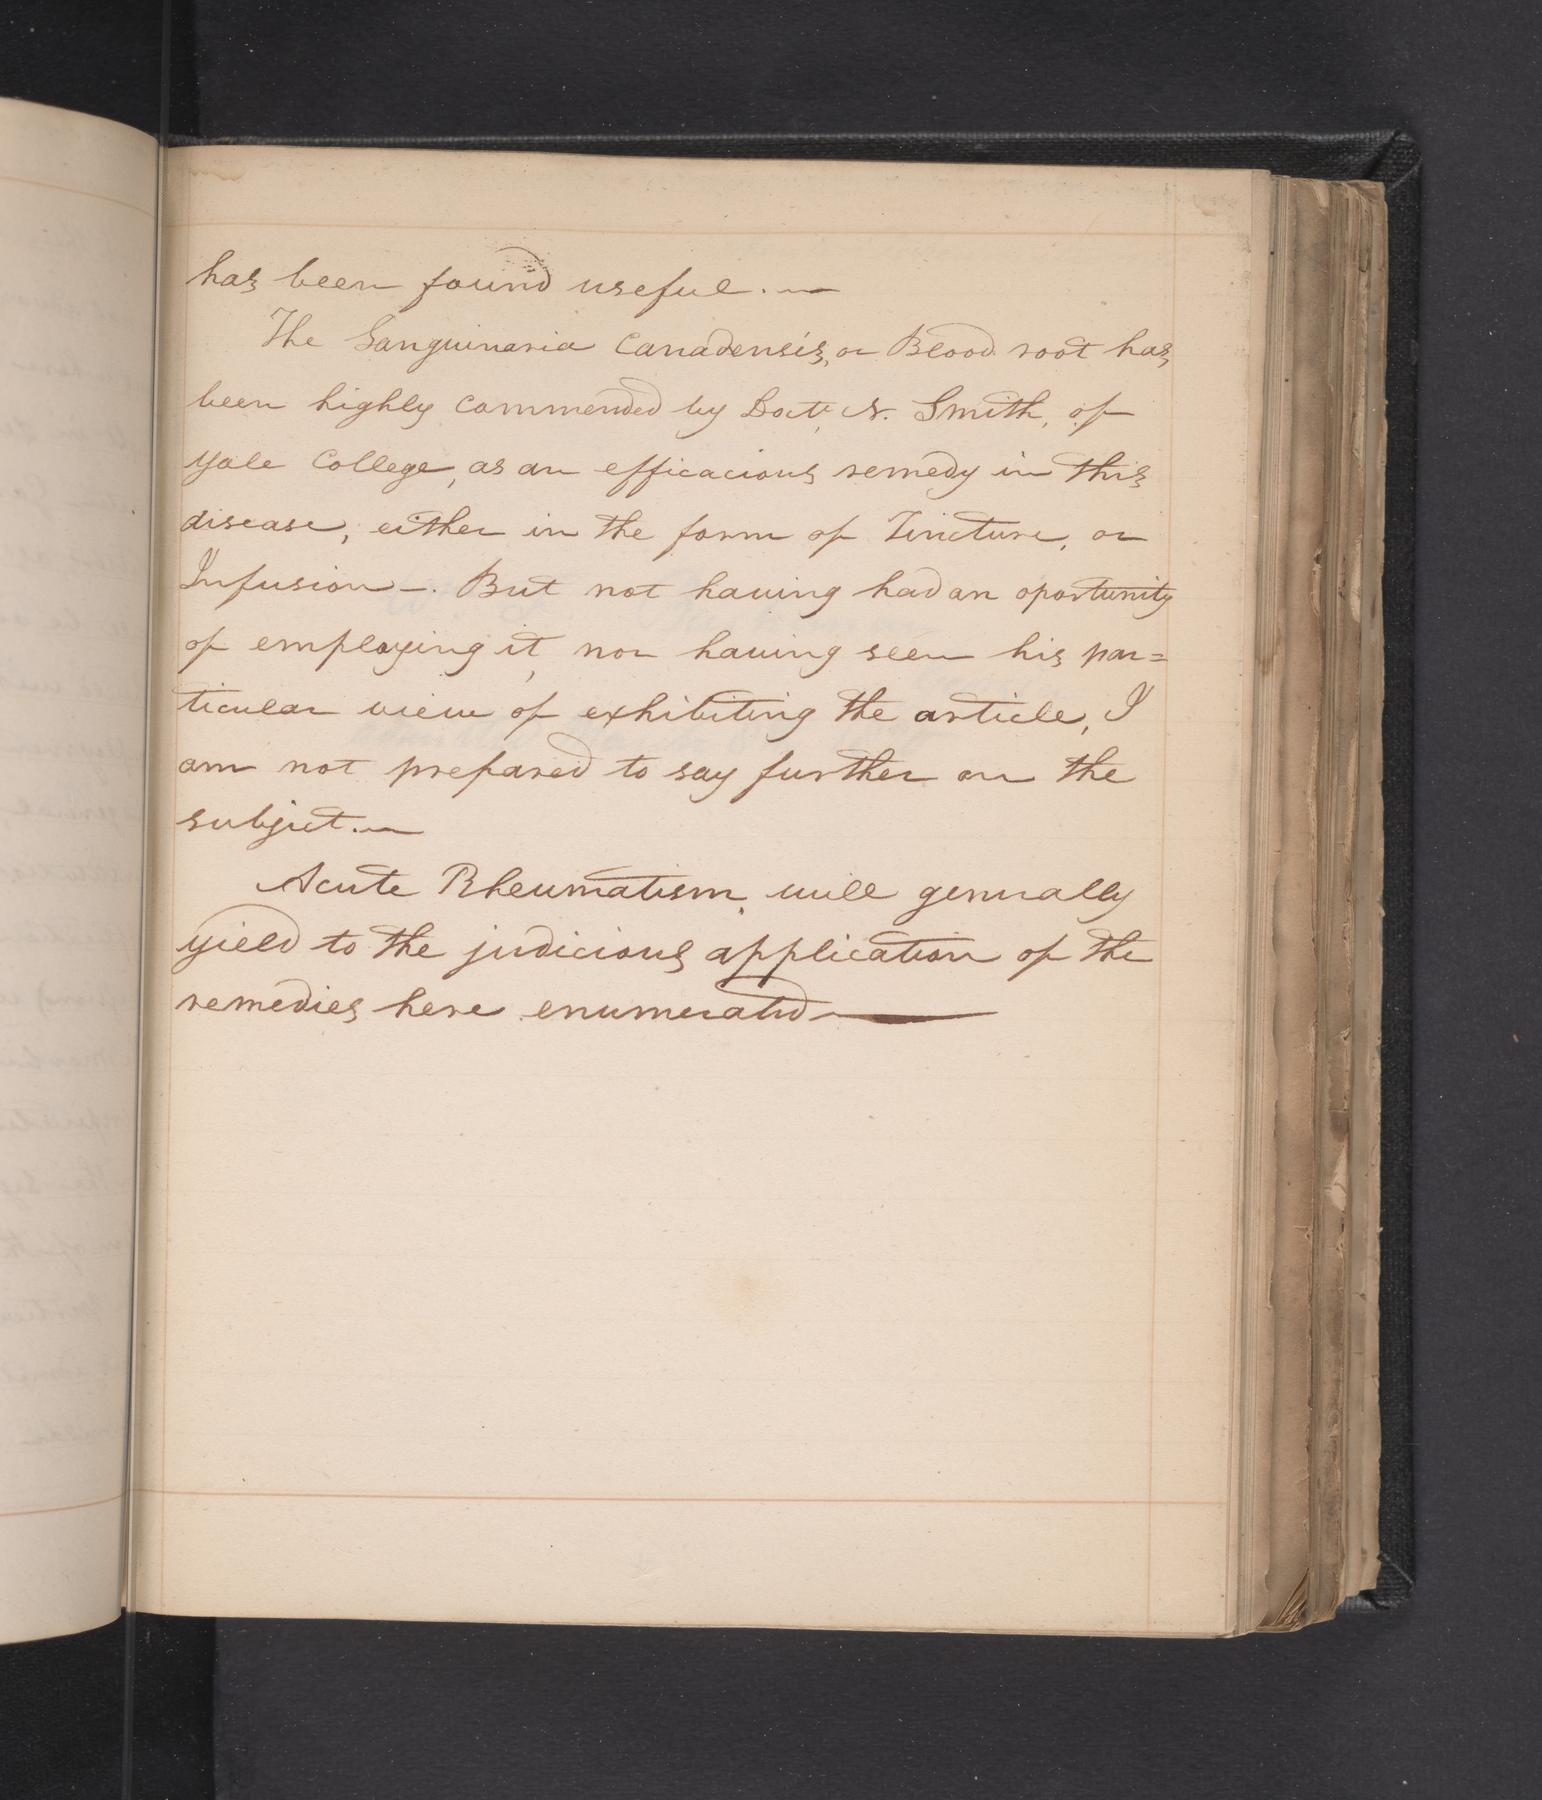 has been found useful.—
The Sanguinaria Canadensis, or Blood root has,
been highly commended by Doctr, N. Smith, of
Yale College, as an efficacious remedy in this
disease, either in the form of Tincture, or
Infusion—. But not having had an oportunity
of employing it, nor having seen his par=
ticular view of exhibiting the article, I
am not prepared to say further on the
subject.—
Acute Rheumatism, will generally
yield to the judicious application of the
remedies here enumerated—